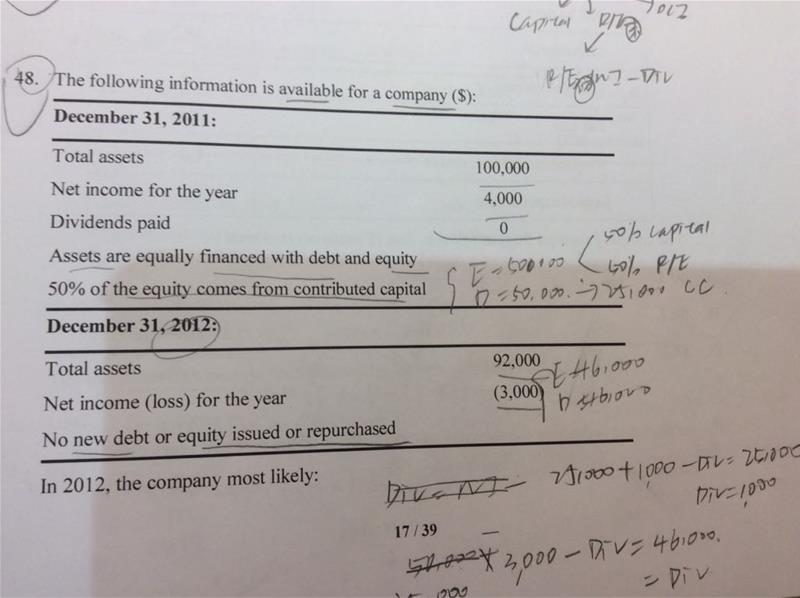 Capital Div OCI
R/E NI - DIV
48. The following information is available for a company ($):
December 31, 2011:
Total assets 100,000
Net income for the year 4,000
Dividends paid 0
50% capital
Assets are equally financed with debt and equity E = 50% R/E
50% of the equity comes from contributed capital D = 50,000. → 25,000 CC
December 31, 2012:
Total assets 92,000 E 46,000
Net income (loss) for the year (3,000) D 46,000
No new debt or equity issued or repurchased
In 2012, the company most likely: Div = NI 25,000 + 1,000 - Div = 25,000
Div = 1,000
17 / 39
3,000 - Div = 46,000.
= Div
000